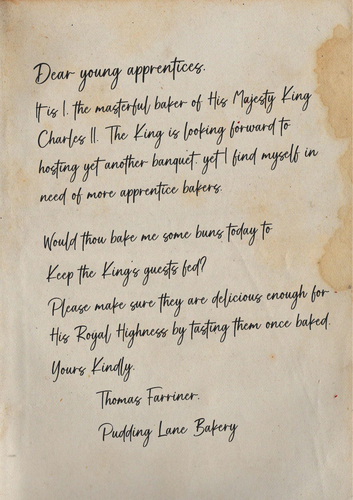 Dear young apprentices.
It is I, the masterful baker of His Majesty King
Charles II. The King is looking forward to
hosting yet another banquet, yet I find myself in
need of more apprentice bakers.
Would thou bake me some buns today to
Keep the King's guests fed?
Please make sure they are delicious enough for
His Royal Highness by tasting them once baked.
Yours Kindly.
Thomas Farriner.
Pudding Lane Bakery